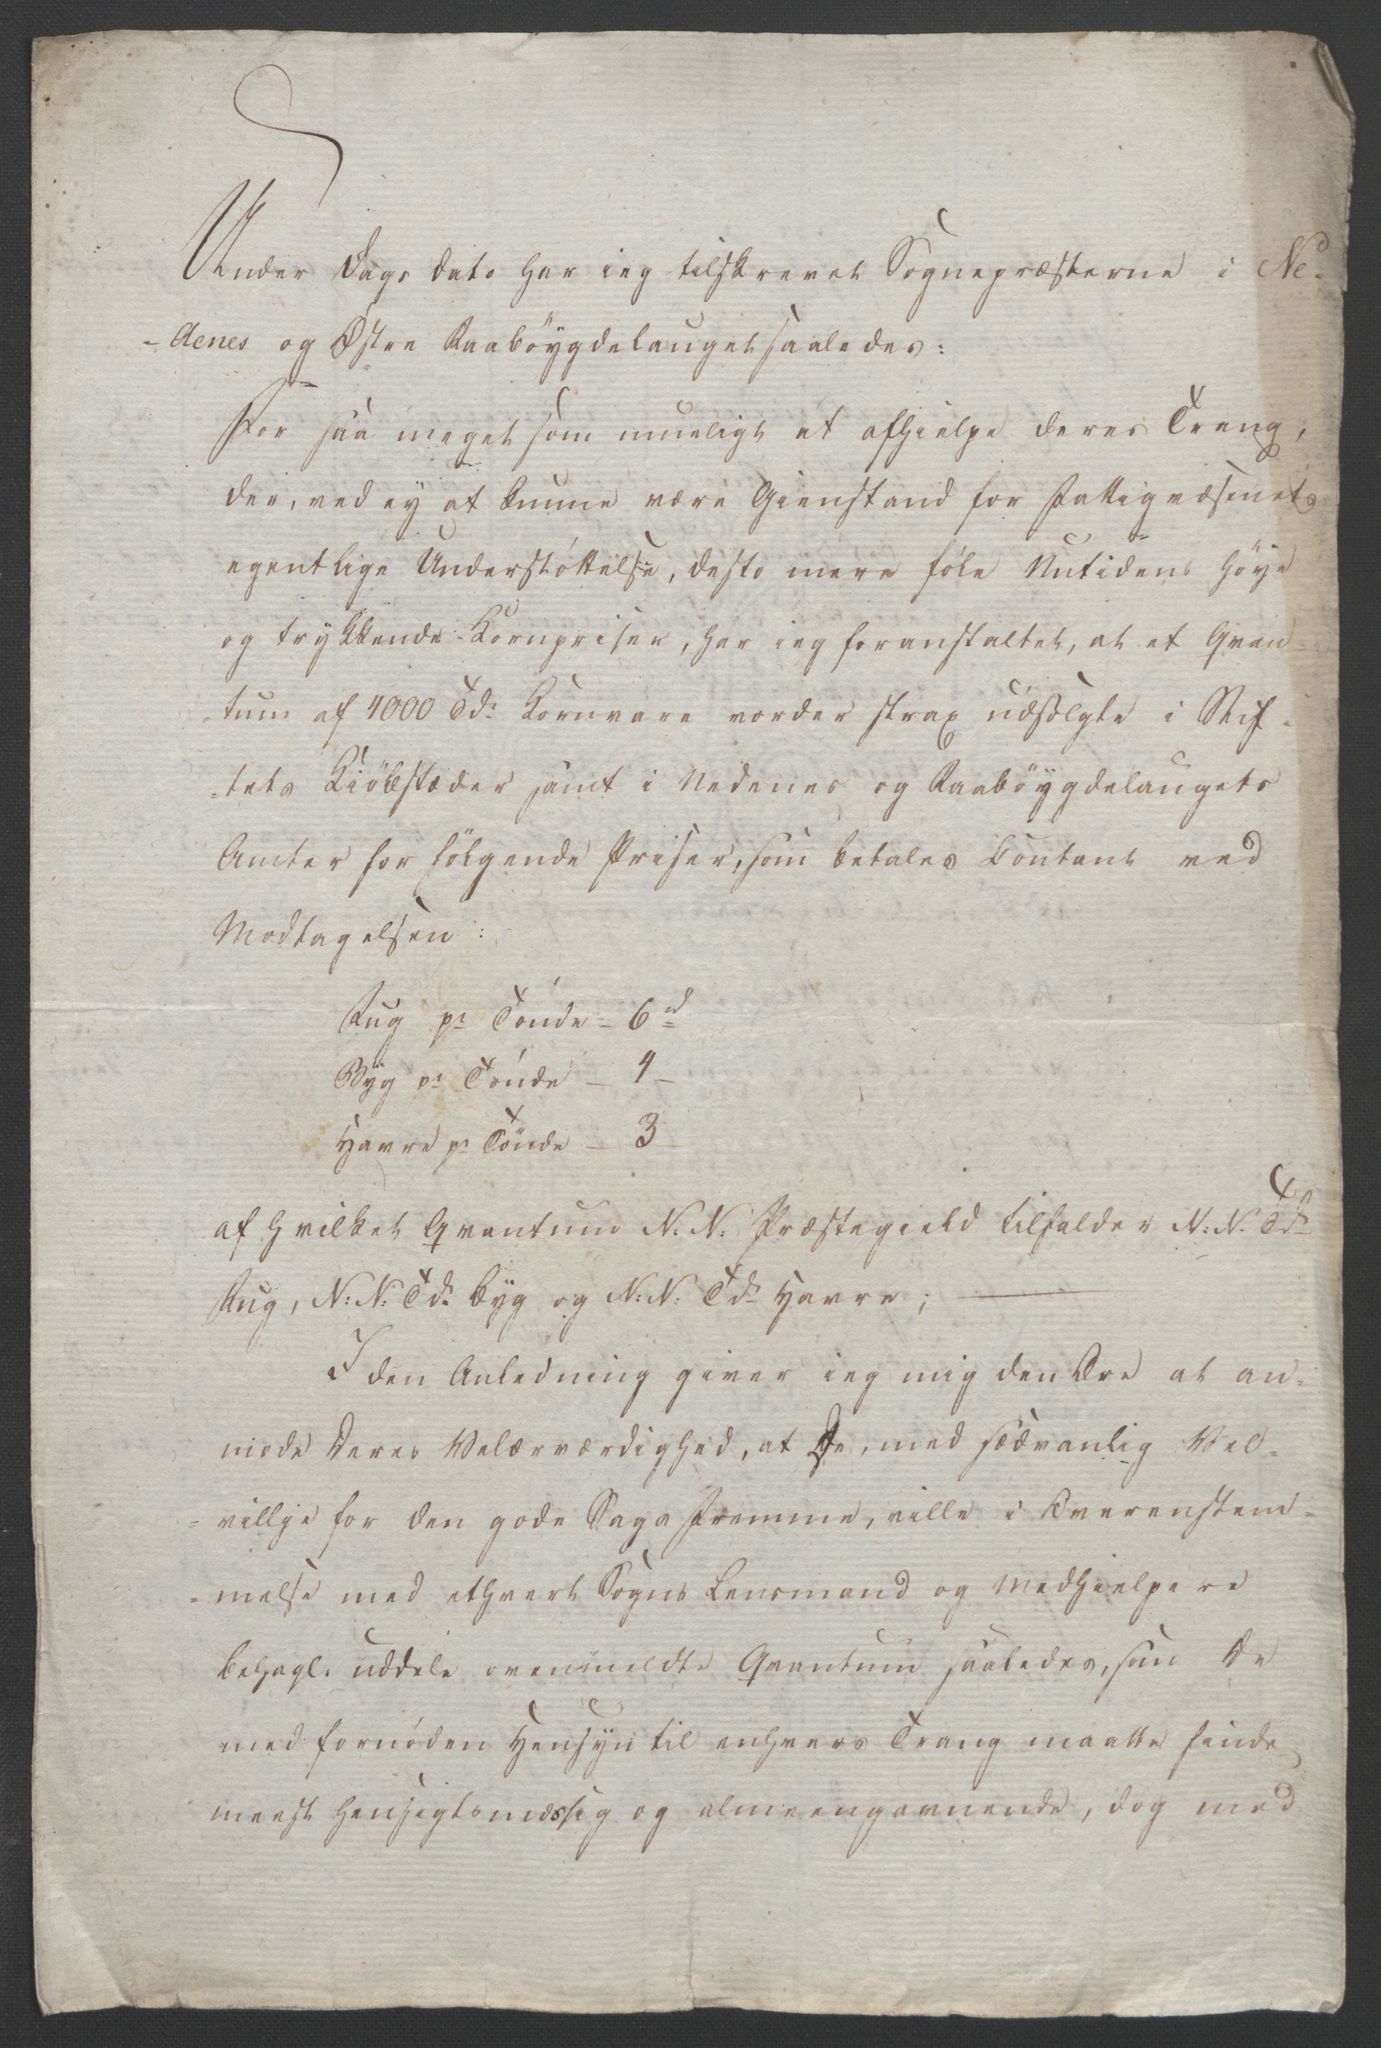 Under Dags Dato har ieg tilskrevet Sognepræsterne i Ne-
-denes og Østre Raabøygdelauget saaledes:
For saa meget som mueligt at afhielpe deres Trang,
der, ved ey at kunne være Gienstand for Fattigvæsenets
egentlige Understøttelse, desto mere føle Nutidens høye
og trykkende Kornpriser, har ieg foranstaltet, at et Qvan-
-tum af 4000 Tdr Kornvare vorder strax udsolgte i Stif-
-tets Kiøbstæder samt i Nedenes og Raabøygdelaugets
Amter for følgende Priser, som betales Contant ved
Modtagelsen:
Rug pr Tønde – 6 rd
Byg pr Tønde – 4 –
Havre pr Tønde – 3
af hvilket Qvantum N: N: Præstegield tilfalder N: N: Tdr
Rug, N: N: Tdr Byg og N: N: Tdr Havre;
I den Anledning giver ieg mig den Ære at an-
mode Deres Velærværdighed, at De, med sædvanlig Vel-
-villje for den gode Sags Fremme, ville i Overenstem-
-melse med ethvert Sogns Lensmand og Medhielpere
behagl: uddele ovenmeldte Qvantum saaledes, som De
med fornøden Hensyn til enhvers Trang maatte finde
meest hensigtsmæssig og almeengavnende, dog med